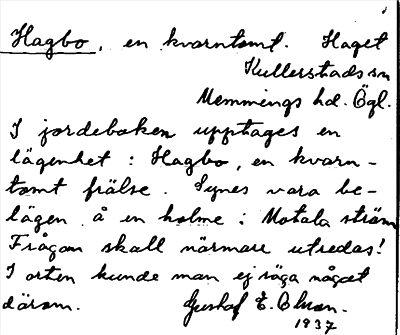 Hagbo, en kvarntomt. Haget
Kullerstads sn
Memmings hd. Ögl.
I jordeboken upptages en
lägenhet: Hagbo, en kvarn-
tomt frälse. Synes vara be-
lägen å en holme i Motala ström
Frågan skall närmare utredas!
I orten kunde man ej säga något
därom. Gustaf E. Ohlson.
1937